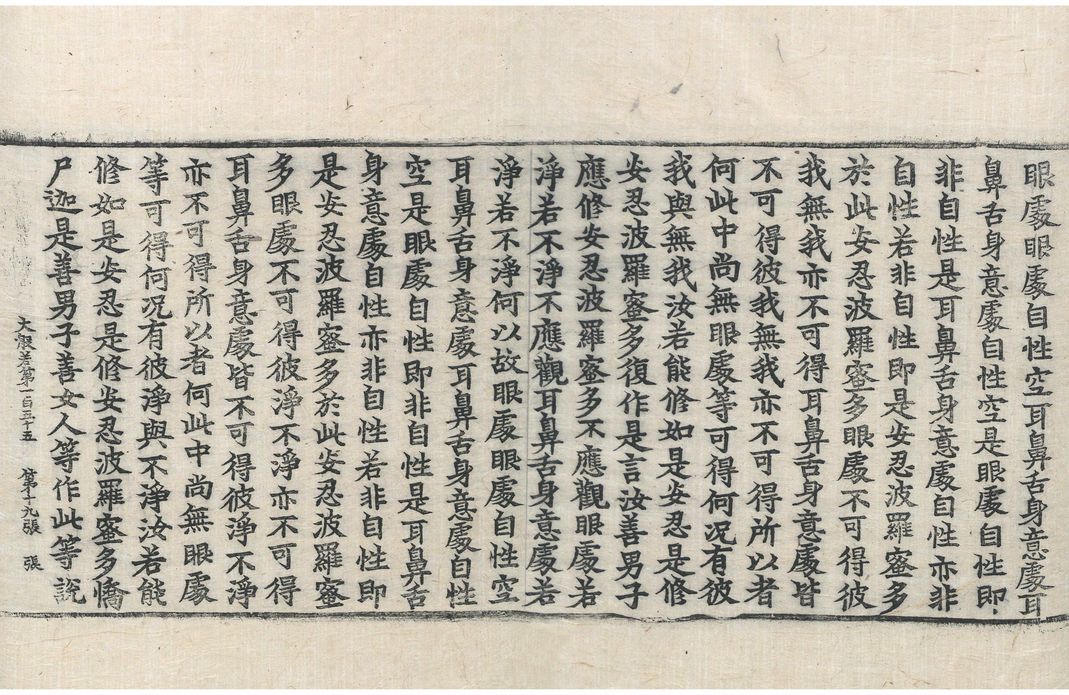 眼處眼處自性空耳鼻舌身意處耳
鼻舌身意處自性空是眼處自性即
非自性是耳鼻舌身意處自性亦非
自性若非自性即是安忍波羅蜜多
於此安忍波羅蜜多眼處不可得彼
我無我亦不可得耳鼻舌身意處皆
不可得彼我無我亦不可得所以者
何此中尚無眼處等可得何況有彼
我與無我汝若能修如是安忍是修
安忍波羅蜜多復作是言汝善男子
應修安忍波羅蜜多不應觀眼處若
淨若不淨不應觀耳鼻舌身意處若
淨若不淨何以故眼處眼處自性空
耳鼻舌身意處耳鼻舌身意處自性
空是眼處自性即非自性是耳鼻舌
身意處自性亦非自性若非自性即
是安忍波羅蜜多於此安忍波羅蜜
多眼處不可得彼淨不淨亦不可得
耳鼻舌身意處皆不可得彼淨不淨
亦不可得所以者何此中尚無眼處
等可得何況有彼淨與不淨汝若能
修如是安忍是修安忍波羅蜜多憍
尸迦是善男子善女人等作此等說
大般若第一百五十五 第十九張 張